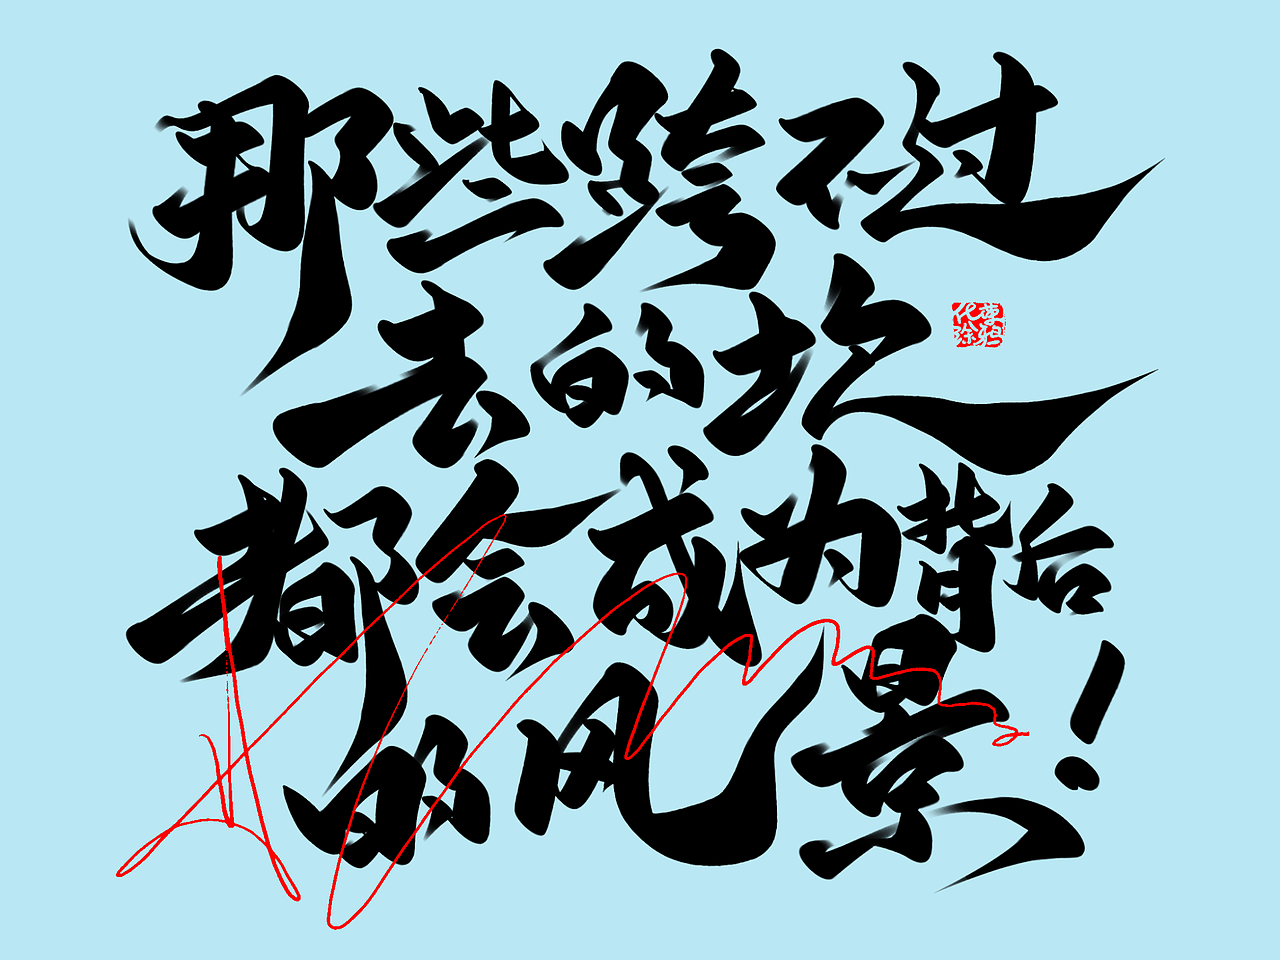 那些跨不过
去的坎
都会成为背后
的风景！